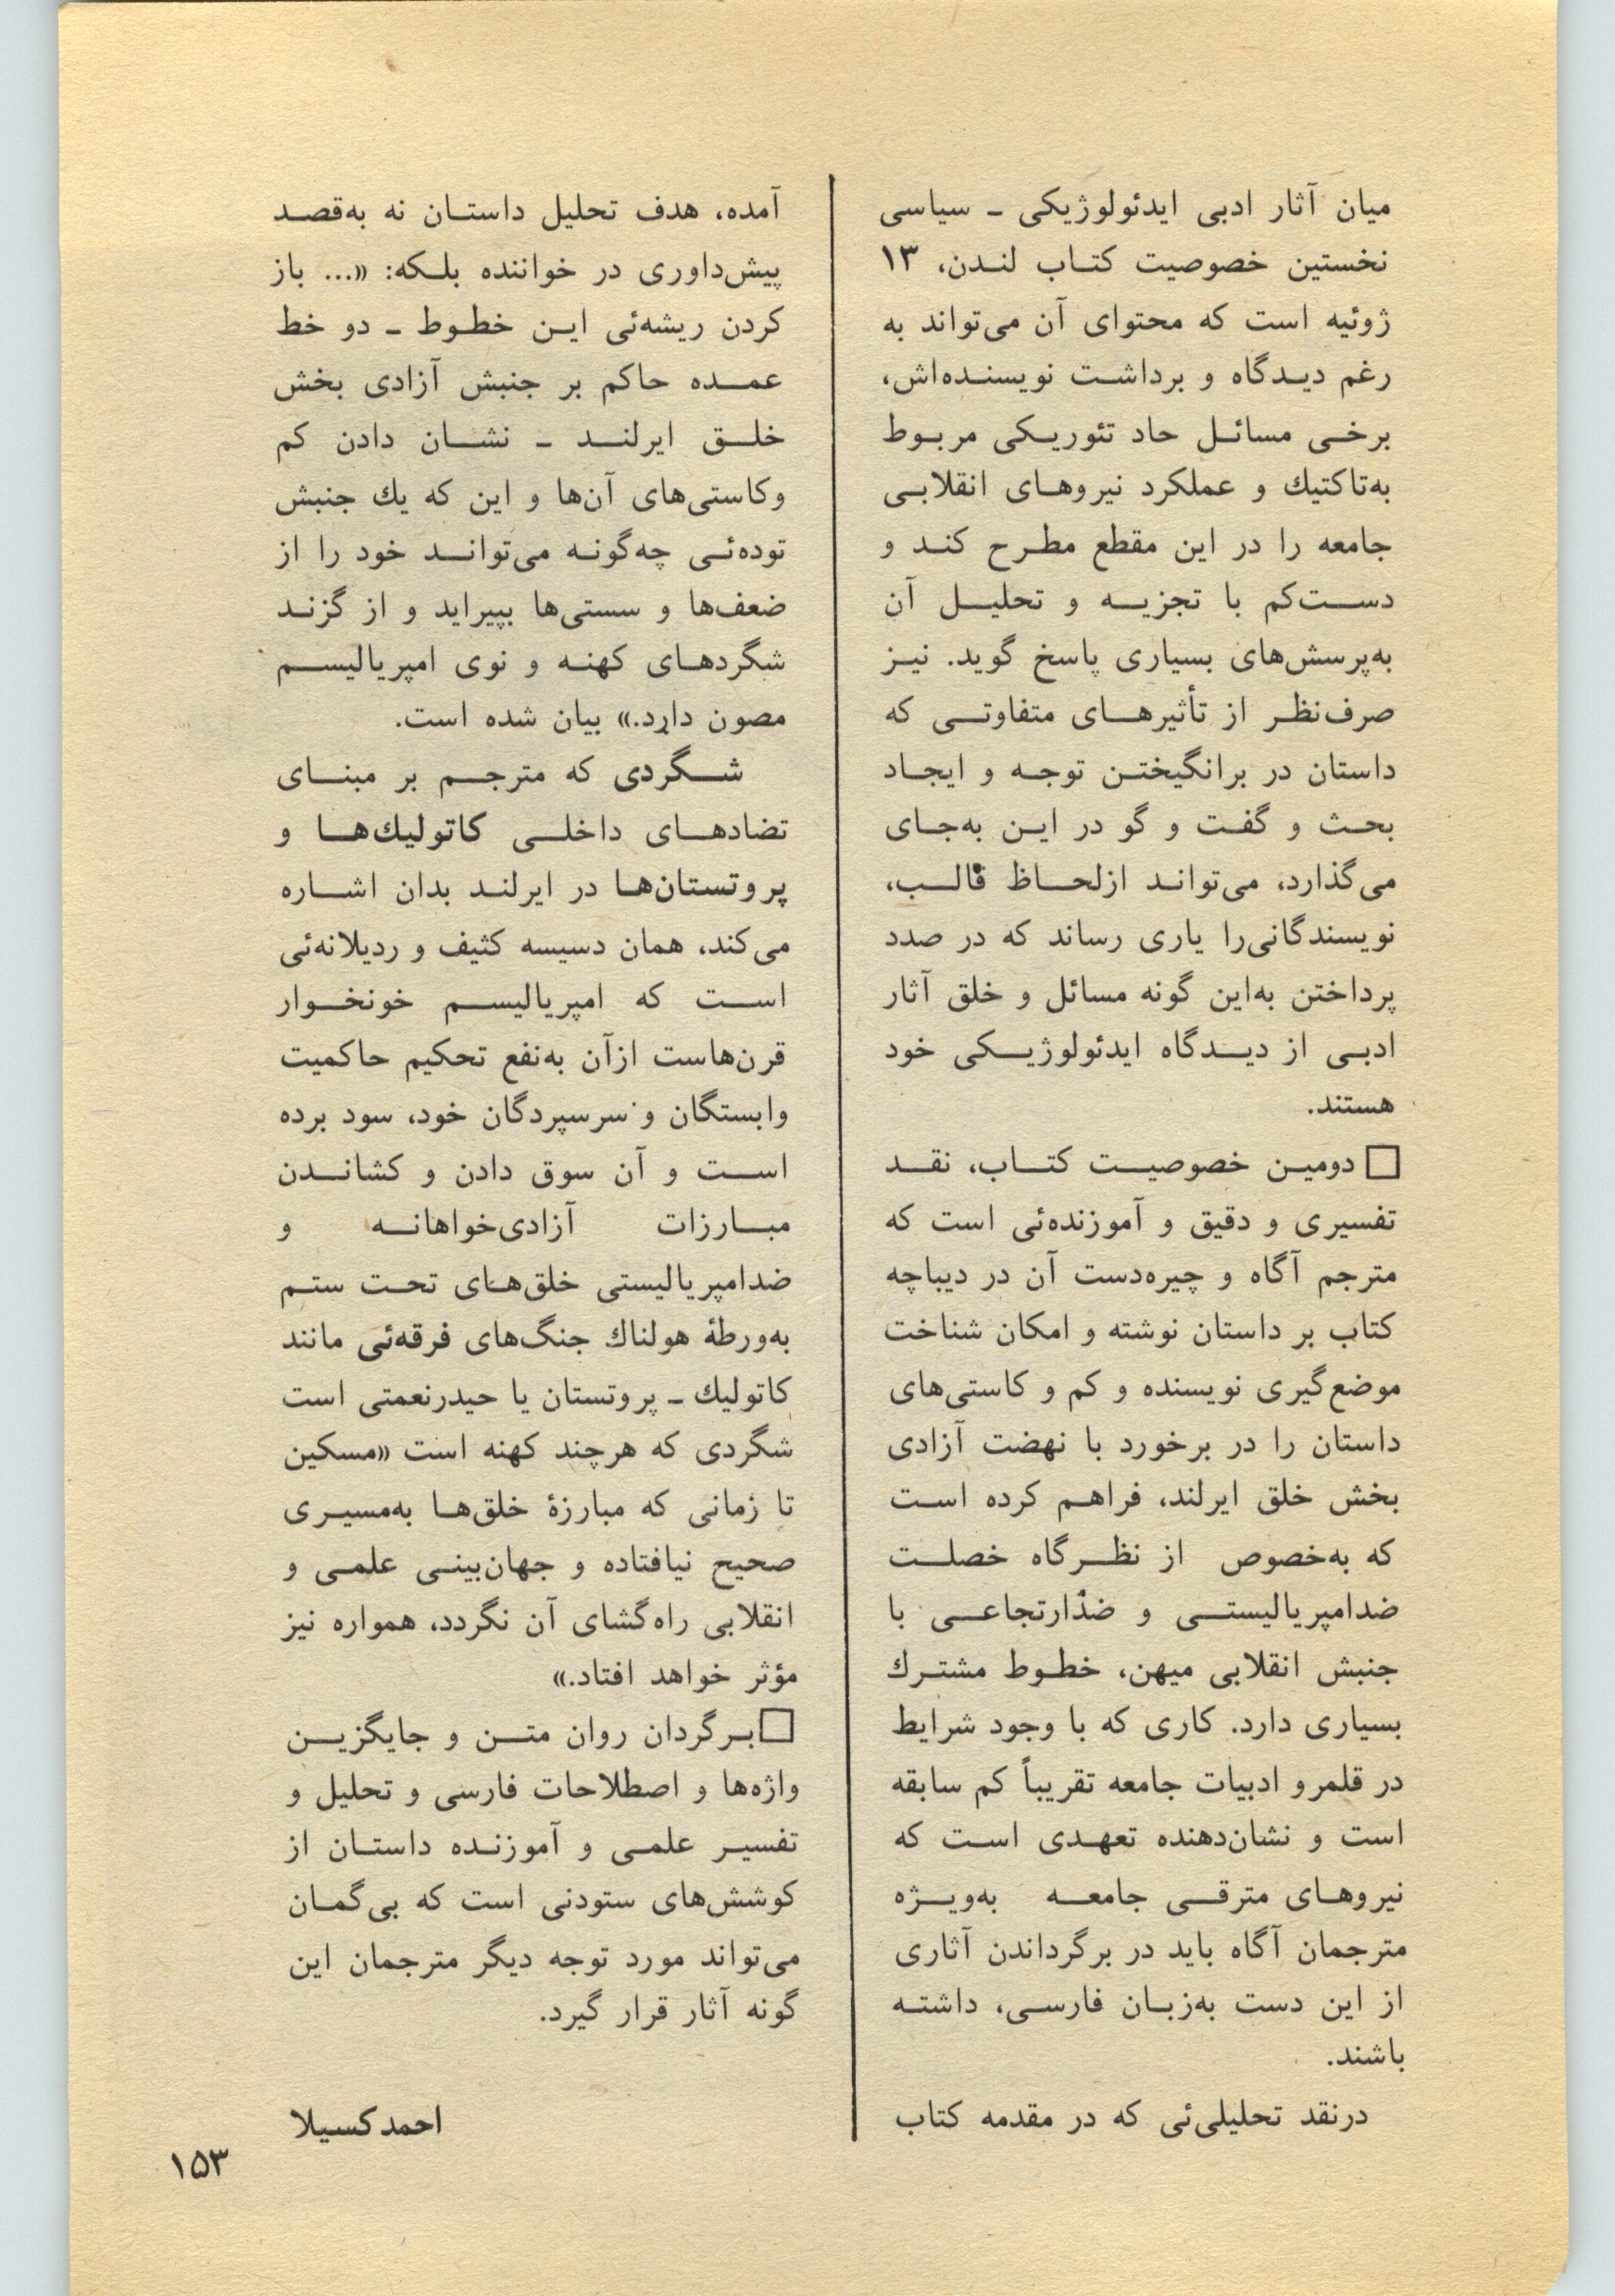 میان آثار ادبی ایدئولوژیکی ـ سیاسی
نخستین خصوصیت کتاب لندن، ۱۳
ژوئیه است که محتوای آن می‌تواند به
رغم دیدگاه و برداشت نویسنده‌اش،
برخی مسائل حاد تئوریکی مربوط
به‌تاکتیك و عملکرد نیروهای انقلابی
جامعه را در این مقطع مطرح کند و
دست‌کم با تجزیه و تحلیل آن
به‌پرسش‌های بسیاری پاسخ گوید. نیز
صرف‌نظر از تأثیرهای متفاوتی که
داستان در برانگیختن توجه و ایجاد
بحث و گفت و گو در این به‌جای
می‌گذارد، می‌تواند ازلحاظ قالب،
نویسندگانی‌را یاری رساند که در صدد
پرداختن به‌این گونه مسائل و خلق آثار
ادبی از دیدگاه ایدئولوژیکی خود
هستند.
□ دومین خصوصیت کتاب، نقد
تفسیری و دقیق و آموزنده‌ئی است که
مترجم آگاه و چیره‌دست آن در دیباچه
کتاب بر داستان نوشته و امکان شناخت
موضع‌گیری نویسنده و کم و کاستی‌های
داستان را در برخورد با نهضت آزادی
بخش خلق ایرلند، فراهم کرده است
که به‌خصوص از نظرگاه خصلت
ضدامپریالیستی و ضدارتجاعی با
جنبش انقلابی میهن، خطوط مشترك
بسیاری دارد. کاری که با وجود شرایط
در قلمرو ادبیات جامعه تقریباً کم سابقه
است و نشان‌دهنده تعهدی است که
نیروهای مترقی جامعه به‌ویژه
مترجمان آگاه باید در برگرداندن آثاری
از این دست به‌زبان فارسی، داشته
باشند.
درنقد تحلیلی‌ئی که در مقدمه کتاب
آمده، هدف تحلیل داستان نه به‌قصد
پیش‌داوری در خواننده بلکه: «... باز
کردن ریشه‌ئی این خطوط ـ دو خط
عمده حاکم بر جنبش آزادی بخش
خلق ایرلند ـ نشان دادن کم
وکاستی‌های آن‌ها و این که یك جنبش
توده‌ئی چه‌گونه می‌تواند خود را از
ضعف‌ها و سستی‌ها بپیراید و از گزند
شگردهای کهنه و نوی امپریالیسم
مصون دارد.» بیان شده است.
شگردی که مترجم بر مبنای
تضادهای داخلی کاتولیك‌ها و
پروتستان‌ها در ایرلند بدان اشاره
می‌کند، همان دسیسه کثیف و ردیلانه‌ئی
است که امپریالیسم خونخوار
قرن‌هاست ازآن به‌نفع تحکیم حاکمیت
وابستگان و سرسپردگان خود، سود برده
است و آن سوق دادن و کشاندن
مبارزات آزادی‌خواهانه و
ضدامپریالیستی خلق‌های تحت ستم
به‌ورطهٔ هولناك جنگ‌های فرقه‌ئی مانند
کاتولیك ـ پروتستان یا حیدرنعمتی است
شگردی که هرچند کهنه است «مسکین
تا زمانی که مبارزهٔ خلق‌ها به‌مسیری
صحیح نیافتاده و جهان‌بینی علمی و
انقلابی راه‌گشای آن نگردد، همواره نیز
مؤثر خواهد افتاد.»
□ برگردان روان متن و جایگزین
واژه‌ها و اصطلاحات فارسی و تحلیل و
تفسیر علمی و آموزنده داستان از
کوشش‌های ستودنی است که بی‌گمان
می‌تواند مورد توجه دیگر مترجمان این
گونه آثار قرار گیرد.
احمد کسیلا
۱۵۳